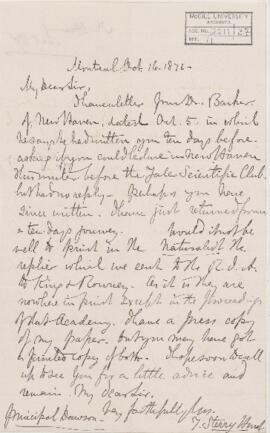 McGILL UNIVERSITY
ARCHIVES
ACC. NO.
REF. 11
Montreal Oct 16. 1872.
My Dear Sir,
I have a letter from Dr. Barker
of New Haven, dated Oct. 5. in which
he says he had written you ten days before
asking if you could lecture in New Haven
this winter before the Yale Scientific Club.
but had no reply. Perhaps you have
since written. I have just returned from
a ten days journey. Would it not be
well to print in the Naturalist the
replies which we sent to the R.I.A.
to King & Rowney. As it is they are
nowhere in print except in the Proceedings
of that Academy. I have a press copy
of my paper. but you may have got
a printed copy of both. I hope soon to call
up to see you for a little advice and
remain. My dear Sir.
Very faithfully yours.
Principal Dawson. T. Sterry Hunt